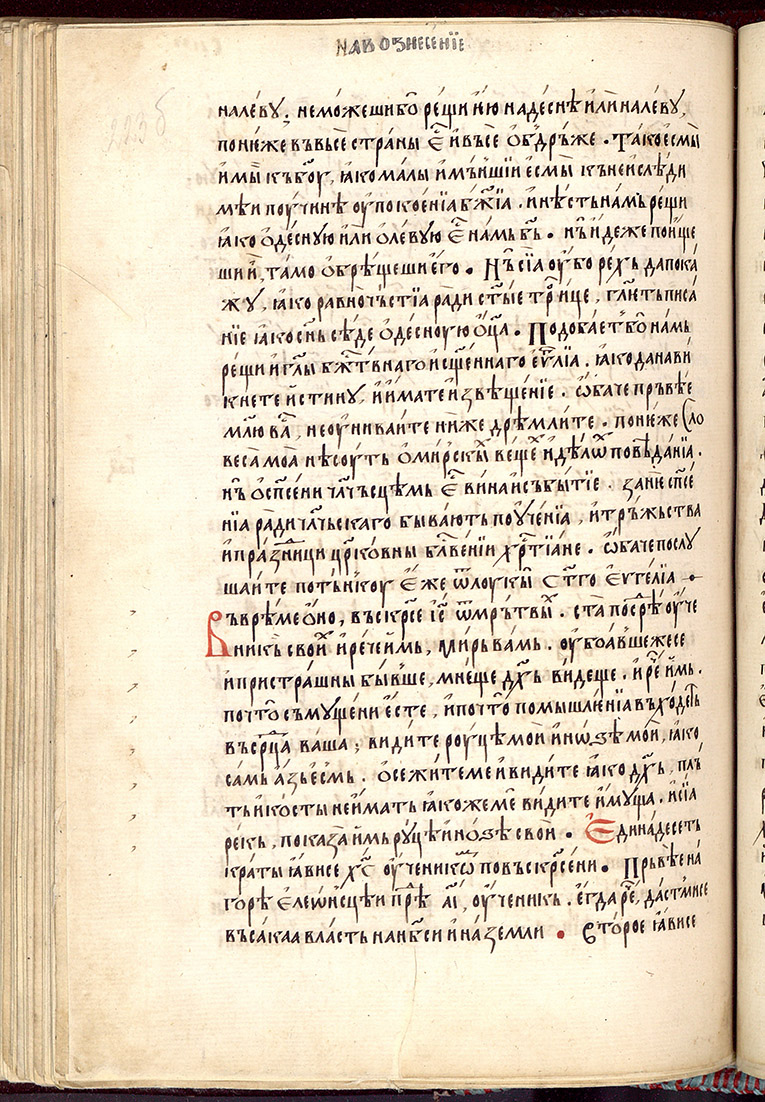 НАВОЗНЕСЕНЇЕ
223 б
налѣву. неможешибѡ рещи ꙗ҆ю надеснѣ и҆линалеву,
понѥже въвьсе страны є҆ и҆въсе ѻбдръже. Такоесмы
и҆мы къбоу, ꙗко малы и҆мъншїи есмы къ неислѣди
мѣи поучинѣ оупокоенїа бжїа. инѣстьнамъ рещи
ꙗко ѻдесную или ѻлевую є҆ намь бъ. нъ идеже поище
ши и, тамо ѻбрѣщеши его. Нъ сїа оубо рехъ дапока
жу, ꙗко равночьстїа ради стые трⷪ҇ице, глⷮ҇еть писа
нїе ꙗко снъ сѣде ѻдесную ѻца. Подобает бо намь
рещи и глы бжⷭ҇твнаго исщеннаго еѵⷢ҇лїа. ꙗко данави
кнете истину, и имате извѣщенїе. ѡбаче пръвѣе
млю ва, неоунывайте ниже дрѣмлите. понѥже Сло
веса моа нѣсоуть ѻмирскыⷯ вещеⷯ и дѣлѡⷨ повѣданїа.
нъ ѻспсени чачьсцѣмь є҆ вина и събытїе. занѥ спсе
нїа ради члчьскаго бывають поученїа, и тръжьства
и празⷣници црⷦ҇ковны блⷢ҇вении хрⷭ҇тїане. ѡбаче послу
шайте потънкоу єже ѿ лоукы с͠тго єѵгелїа
Въврѣме ѻно, въскрсе іс ѿ мрътвыⷯ. ста посрⷣѣ оуче
никь своиⷯ и рече имь, миръ вамь. оубоавшежесе
и пристрашны бывше, мнеще дхъ видеще. и рⷱ҇е имь.
почто съмущени есте, и почто помышленїа въходеть
въ срⷣца ваша; видите роуцѣ мои и ноѕѣ мои, ꙗко
самь азь есмь. ѻсежите ме и видите ꙗко дхъ, плъ
ть и кости не имать ꙗкоже ме видите имуща. и сїа
рекь, показа имь руцѣ и ноѕѣ свои. Єдинадесеть
краты ꙗвисе хс оученикѡⷨ по въскрсени. Прьвѣе на
горѣ єлеѡнсцѣи прⷣѣ аі, оученикь. егда рⷱ҇е, дастмисе
въсакаа власть на нбси и на земли. Второе ꙗвисе